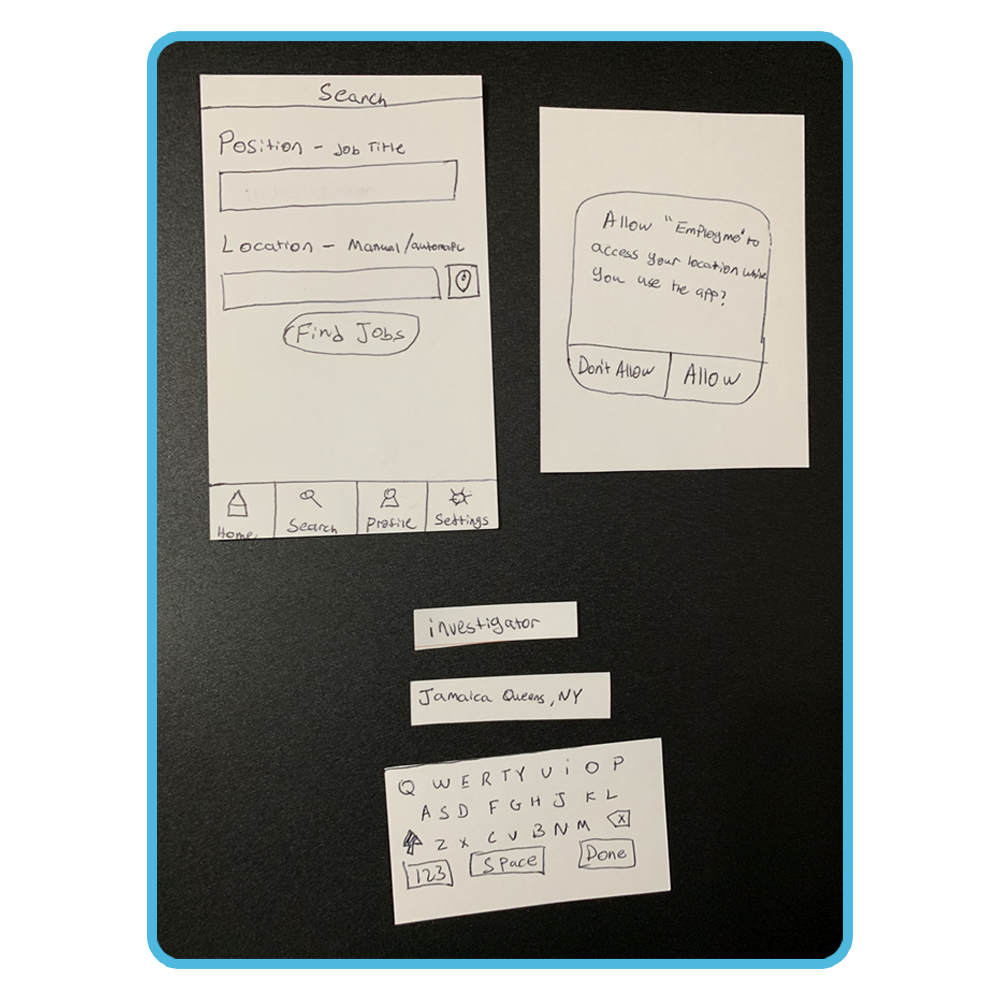 Search
Position - Job Title
Location - Manual/automatic
Find Jobs
Home
Search
Profile
Settings
Allow "Employmo" to
access your location while
you use the app?
Don't Allow
Allow
investigator
Jamaica Queens, NY
Q W E R T Y U i O P
A S D F G H J K L
Z X C V B N M X
123
Space
Done